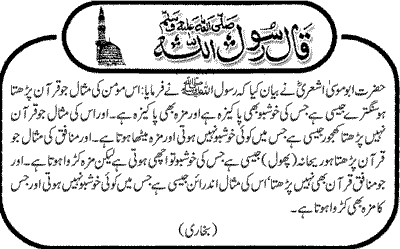 قال رسول اللہ صلی اللہ علیہ وسلم
حضرت ابوموسیٰ اشعریؓ نے بیان کیا کہ رسول اللہ ﷺ نے فرمایا: اس مومن کی مثال جو قرآن پڑھتا
ہو سنگترے جیسی ہے جس کی خوشبو بھی پاکیزہ ہے اور مزہ بھی پاکیزہ ہے۔ اور اس کی مثال جو قرآن
نہیں پڑھتا کھجور جیسی ہے جس میں کوئی خوشبو نہیں ہوتی اور مزہ میٹھا ہوتا ہے۔ اور منافق کی مثال جو
قرآن پڑھتا ہو ریحانہ (پھول) جیسی ہے جس کی خوشبو تو اچھی ہوتی ہے لیکن مزہ کڑوا ہوتا ہے۔ اور
جو منافق قرآن بھی نہیں پڑھتا' اس کی مثال اندرائن جیسی ہے جس میں کوئی خوشبو نہیں ہوتی اور جس
کا مزہ بھی کڑوا ہوتا ہے۔
(بخاری)